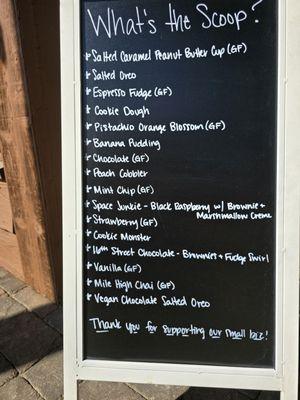 What's the Scoop?
* Salted Caramel Peanut Butter Cup (GF)
* Salted Oreo
* Espresso Fudge (GF)
* Cookie Dough
* Pistachio Orange Blossom (GF)
* Banana Pudding
* Chocolate (GF)
* Peach Cobbler
* Mint Chip (GF)
* Space Junkie - Black Raspberry w/ Brownie +
Marshmallow Creme
* Strawberry (GF)
* Cookie Monster
* 16th Street Chocolate - Brownies + Fudge Swirl
* Vanilla (GF)
* Mile High Chai (GF)
* Vegan Chocolate Salted Oreo
Thank you for supporting our small biz!